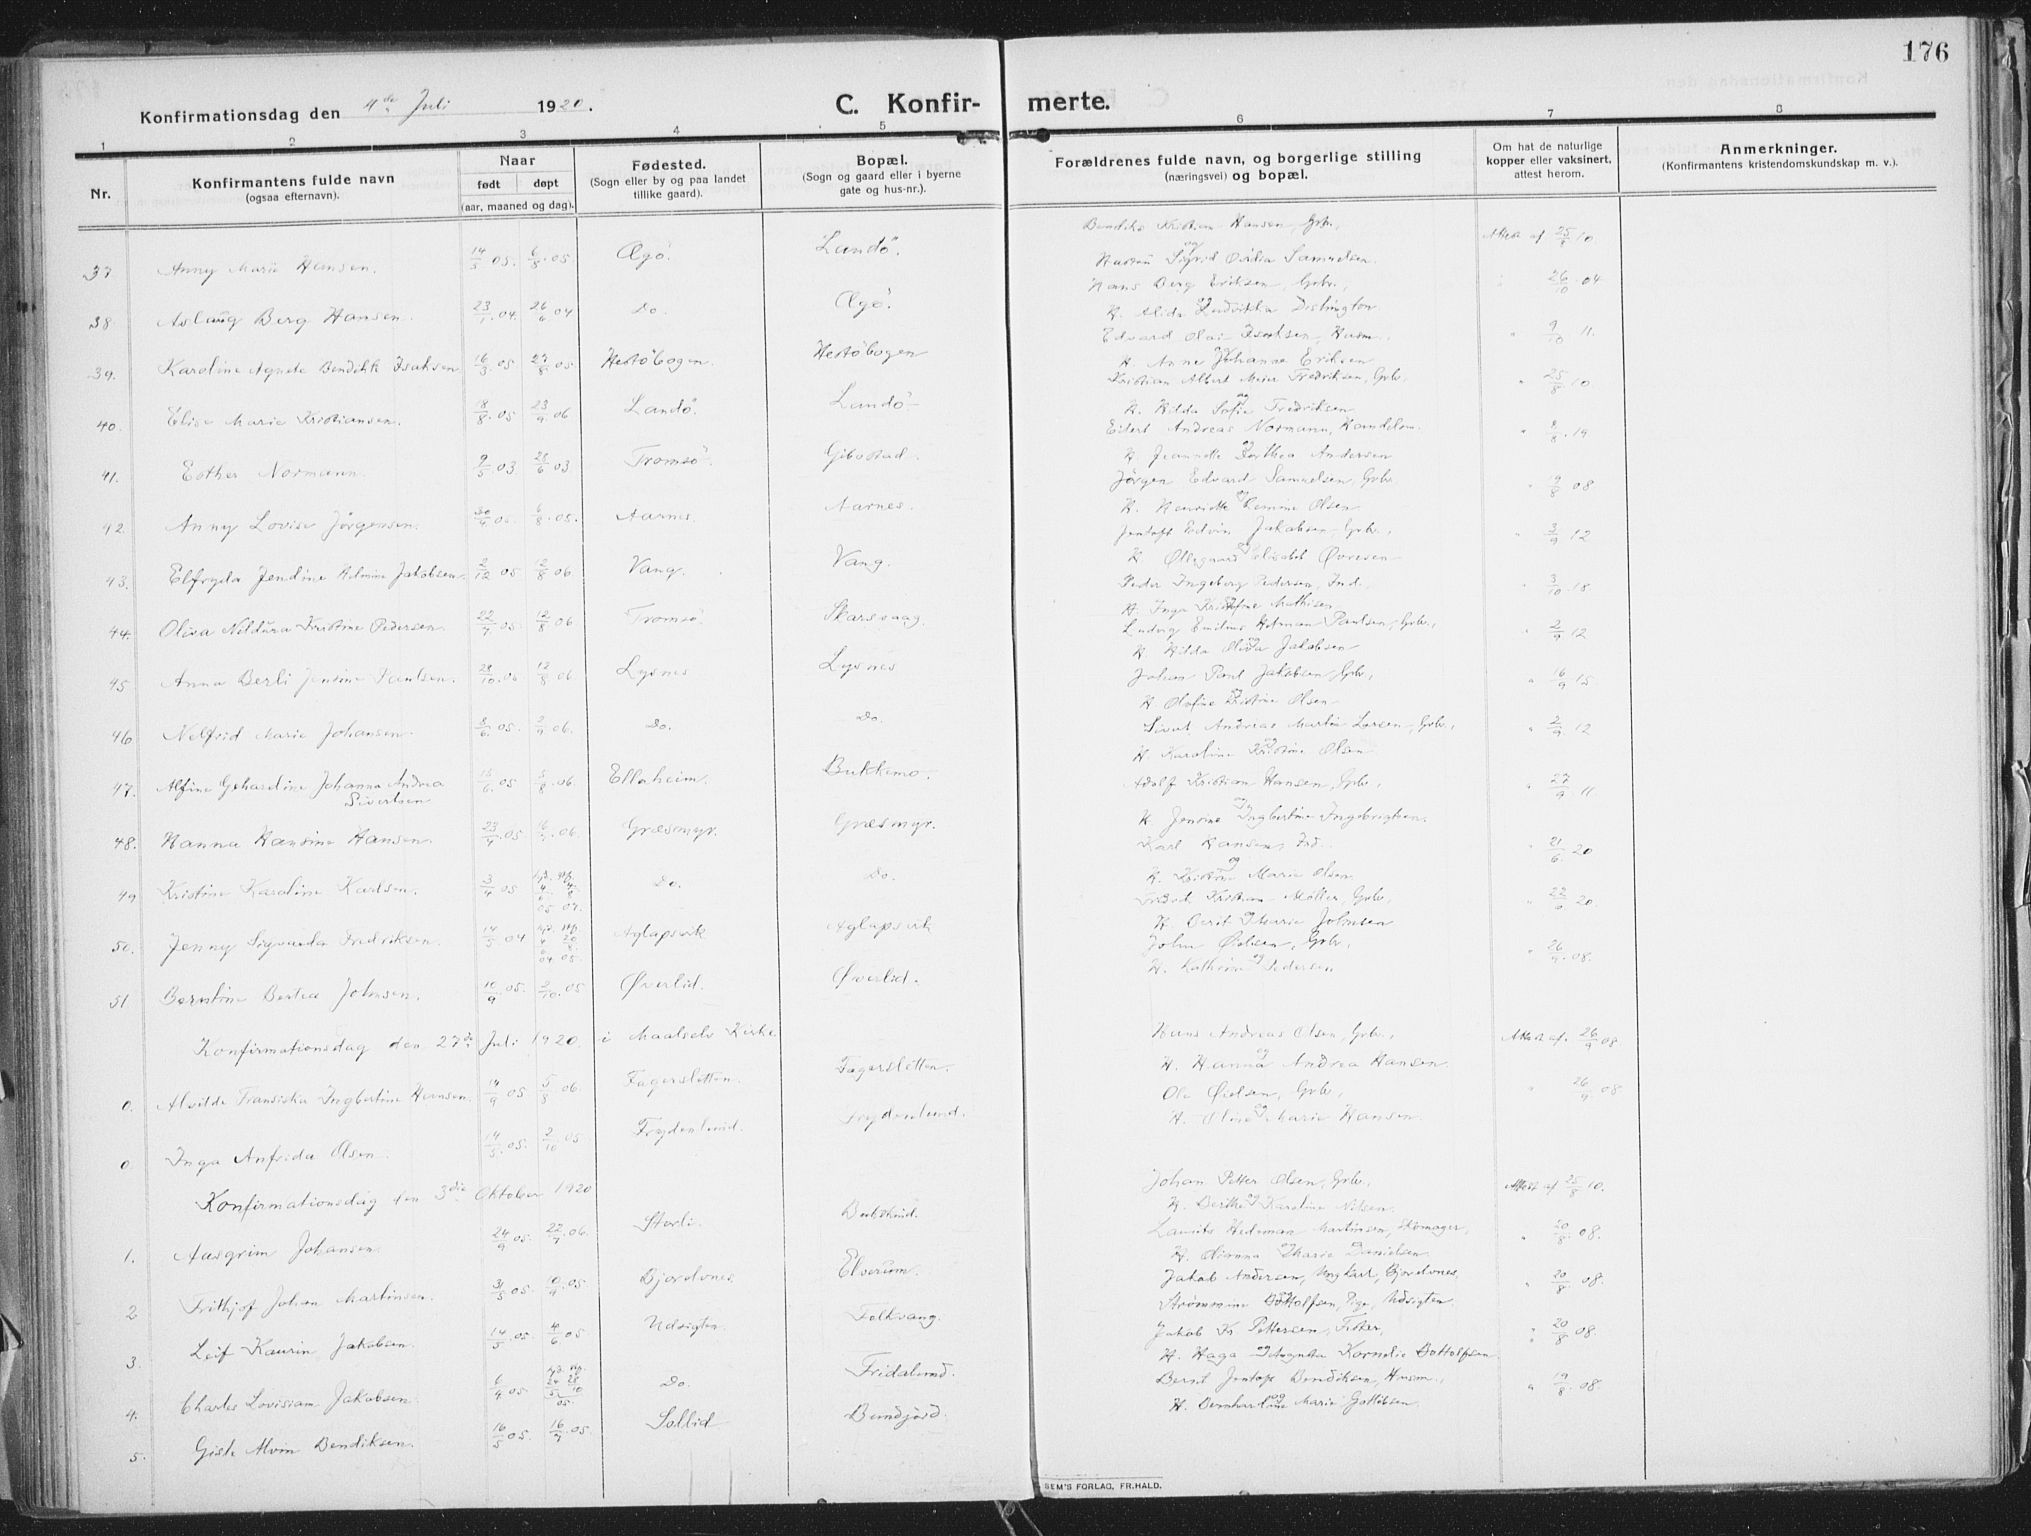 176
Konfirmationsdag den 4de Juli 1920. C. Konfir- merte.
1 2 3 4 5 6 7 8
Nr.
Konfirmantens fulde navn
(ogsaa efternavn).
Naar
født døpt
(aar, maaned og dag).
Fødested.
(Sogn eller by og paa landet
tillike gaard).
Bopæl.
(Sogn og gaard eller i byerne
gate og hus-nr.).
Forældrenes fulde navn, og borgerlige stilling
(næringsvei) og bopæl.
Om hat de naturlige
kopper eller vaksinert,
attest herom.
Anmerkninger.
(Konfirmantens kristendomskundskap m. v.).
37. Anny Marie Hansen. 14/5 05. 6/8 05 Ægö. Landö. Bendiks Kristian Hansen, Grbr., Attest af 25/8 10
og
Hustru Sigrid Samuelsen.
38. Aslaug Berg Hansen. 23/1 04. 26/6 04 Do. Ægö. Hans Berg Eriksen, Grbr., " 26/10 04
H. Alida Ludvikka Distington
39. Karoline Agnete Bendikk Isaksen 16/3 05. 27/8 05 Hestöbogen. Hestöbogen Edvard Olai Isaksen, Husm., " 9/10 11.
H. Anne Johanna Eriksen
40. Elise Marie Kristiansen. 18/8 05 23/9 06 Landö. Landö Kristian Albert Meier Fredriksen, Grbr. " 25/8 10
H. Hilda Sofie Fredriksen
41. Esther Normann. 9/5 03 28/6 03 Tromsö Gibostad. Eilert Andreas Normann, Handelsm. " 8/8 19
H. Jeannette Dorthea Andersen
42. Anny Lovise Jörgensen. 30/4 05. 6/8 05. Aarnes. Aarnes. Jörgen Edvard Samuelsen, Grbr. " 19/8 08
H. Henriette Olsen
43. Elfryda Jendine Helmine Jakobsen. 2/12 05 2/8 06 Vang. Vang. Jentoft Edvin Jakobsen, Grbr., " 3/9 12
H. Ollegaard Elisabet Øvresen
44. Oliva Nildura Kristine Pedersen. 22/7 05 12/8 06 Tromsö Skarsvaag. Peder Ingeberg Pedersen, Ind., " 3/10 18
H. Inga Kristine Mathisen
45 Anna Berli Jensine Paulsen. 28/10 05 12/8 06 Lysnes Lysnes Ludvig Emilius Hetman Paulsen, Grbr., " 2/9 12
H. Hilda Olida Jakobsen
46 Nelfrid Marie Johansen. 8/6 05. 2/9 06. Do. Do. Johan Paul Jakobsen, Grbr., " 16/9 15
H. Olufine Kristine Olsen
47. Alfine Gehardine Johanna Andrea
Sivertsen 15/6 05 5/8 06. Ellaheim. Bukkemo. Sivert Andreas Martin Larsen, Grbr., " 2/9 12
H. Karoline Kristine Olsen
48. Hanna Hansine Hansen. 23/4 05 16/7 06. Græsmyr. Græsmyr. Adolf Kristian Hansen, Grbr., " 27/9 11
H. Jensine Ingbertine Ingebrigtsen.
49 Kristine Karoline Karlsen. 3/4 05 Do. Do. Karl Hansen, Ind. " 21/6 20
H. Kristine Marie Olsen
50. Jenny Sigvarda Fredriksen. 14/5 04 Aglapsvik Aglapsvik Fredrik Kristian Möller, Grbr., " 22/6 20.
H. Berit Marie Johnsen
51 Berntine Bertea Johnsen. 10/9 05. 2/10 05 Øverlid. Øverlid. John Øielsen, Grbr., " 26/9 08.
H. Kathrine Pedersen
Konfirmationsdag den 27de Juli 1920. i Maalselv Kirke.
0. Alvilde Fransiska Ingbertine Hansen. 14/9 05 5/8 06. Fagersletten. Fagersletten. Hans Andreas Olsen, Grbr., Attest af. 26/9 08
H. Hanna Andrea Hansen.
0. Inga Anfrida Olsen. 14/5 05. 2/10 05 Frydenlund. Frydenlund. Ole Øielsen, Grbr., " 26/9 08
H. Oline Marie Hansen.
Konfirmationsdag den 3die Oktober 1920
1. Aasgrim Johansen. 24/9 05. 22/7 06. Storli. Johan Petter Olsen, Grbr., Attest af 25/8 10.
H. Berthe Karoline Nilsen.
2 Frithjof Johan Martinsen. 31/5 05. 10/9 05 Bjorelvnes Elverum. Laurits Hedeman Martinsen, Skomager, " 20/8 08.
H. Marie Danielsen.
3. Leif Kaurin Jakobsen. 14/5 05. 4/6 05 Udsigten. Folkvang. Jakob Andersen, Ungkarl, Bjorelvnes, " 20/8 08.
Bottolfsen, Pige, Udsigten.
4. Charles Lovisiam Jakobsen. 6/4 05. Do. Fridalund. Jakob Kr. Pettersen, Fisker, " 20/8 08.
H. Haga Kornelie Bottolfsen
5. Giste Alvin Bendiksen. 16/5 05. 16/7 05 Sollid Bundjord. Bernt Jentoft Bendiksen, Husm., " 19/8 08
H. Bernhardine Marie Gottlibsen.
SEM'S FORLAG, FR.HALD.